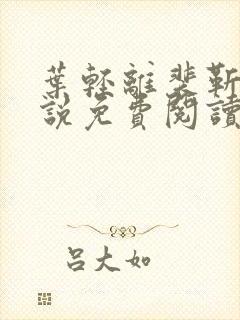 葉輕離裴靳
說免費閱讀
呂大如